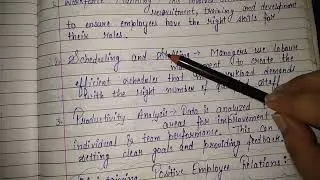 recruitment, training and development
to ensure employees have the right skills for
their roles.
Scheduling and → Managers use labour
management to create the
efficient schedules that workload demands
with the right number of staff
3. Productivity Analysis → Data is analyzed
areas for improvement
individual is team performance. This can
setting clear goals and providing feedback.
Positive Employee Relations :